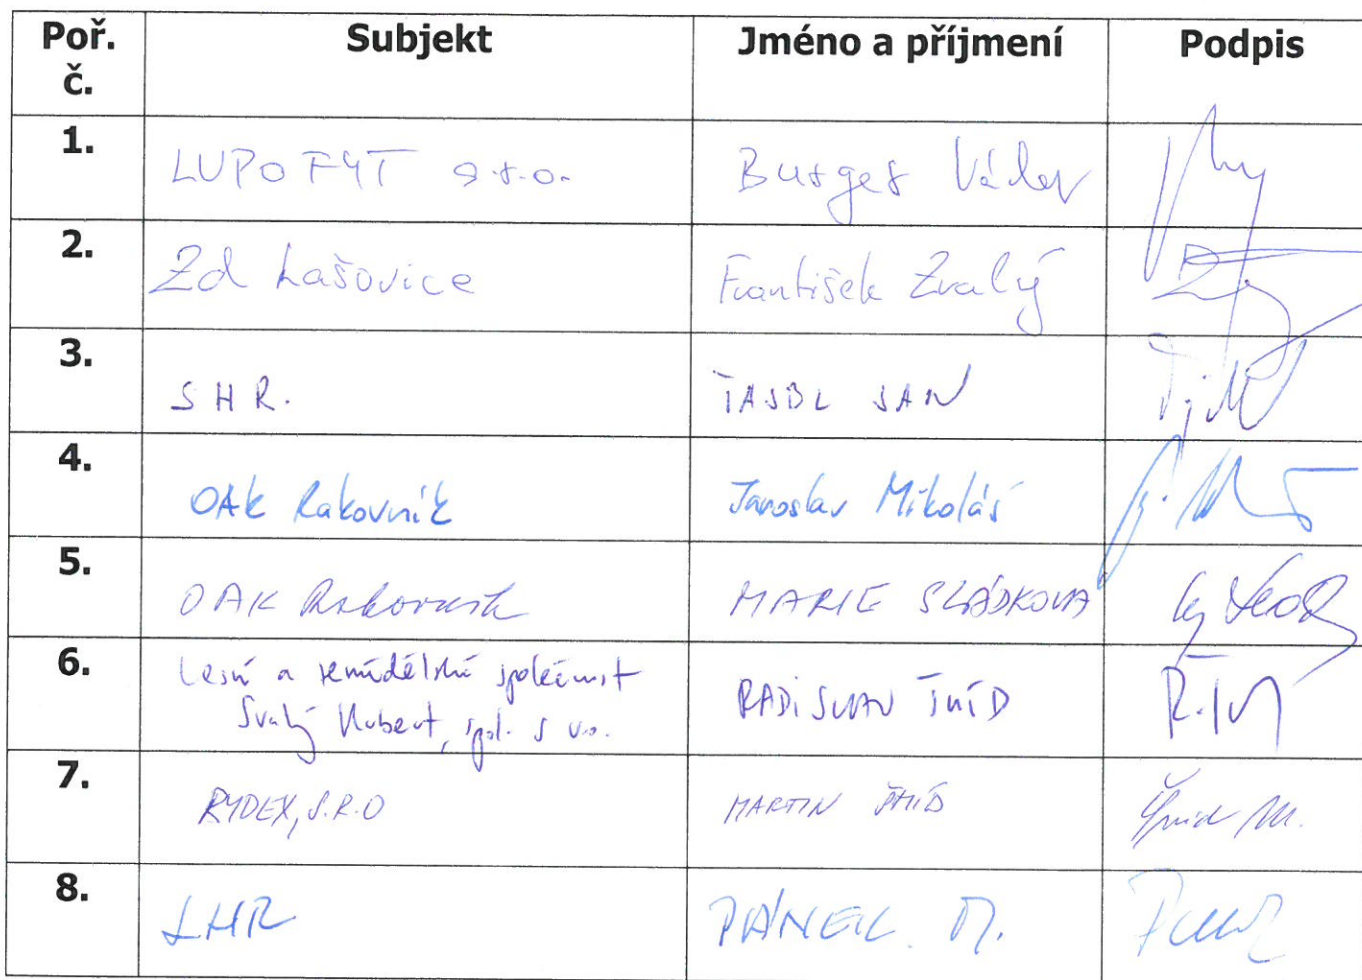 Poř. č. Subjekt Jméno a příjmení Podpis
1. LUPOFYT s.r.o. Burger Václav
2. Zd Lašovice František Zvalý
3. SHR. JAN
4. OAK Rakovník Jaroslav Mikoláš
5. OAK Rakovník MARIE SLÁDKOVA
6. Lesní a zemědělská společnost
Svatý Hubert, spol. s r.o. RADISLAV ŠMÍD
7. RYDEX, S.R.O MARTIN ŠMÍD Šmíd M.
8. SHR PÁNEK M.